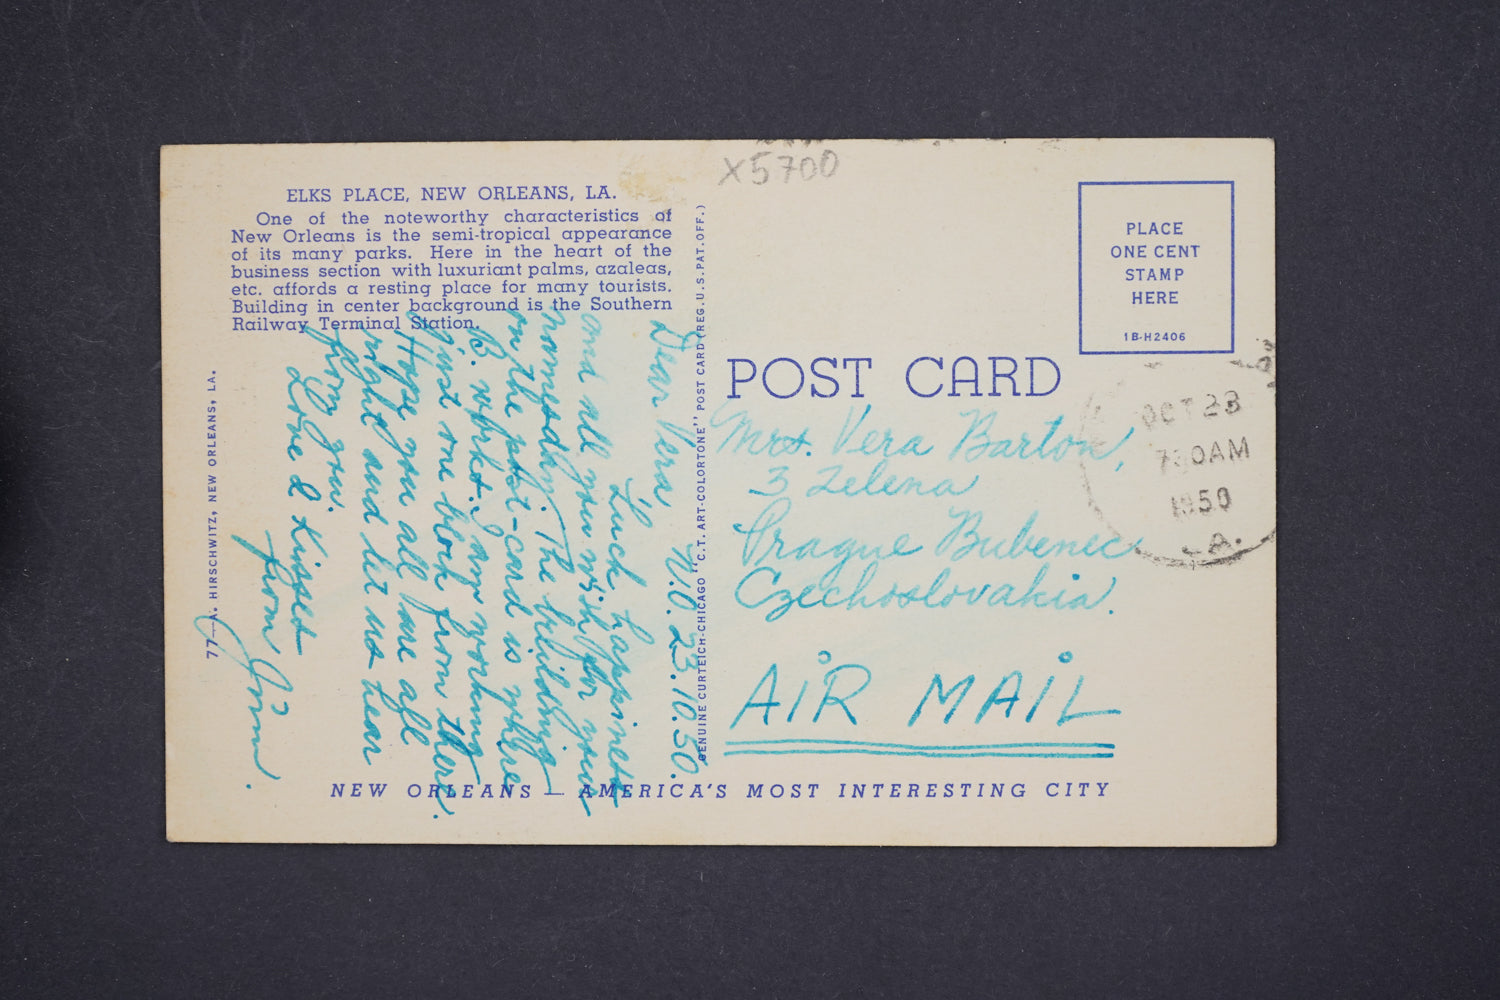 X5700
ELKS PLACE, NEW ORLEANS, LA.
One of the noteworthy characteristics of
New Orleans is the semi-tropical appearance
of its many parks. Here in the heart of the
business section with luxuriant palms, azaleas,
etc. affords a resting place for many tourists.
Building in center background is the Southern
Railway Terminal Station.
N.O. 23.10.50.
Dear Vera
Luck, happiness
and all you wish for your
namesday. The building
on the post-card is where
B. works. I am working
just one block from there.
Hope you all are all
right and let us hear
from you.
Love & Kisses
from
77—A. HIRSCHWITZ, NEW ORLEANS, LA.
GENUINE CURTEICH-CHICAGO "C.T. ART-COLORTONE" POST CARD (REG.U.S.PAT.OFF.)
PLACE
ONE CENT
STAMP
HERE
1B-H2406
POST CARD
OCT 23
730AM
1950
LA.
Mrs. Vera Barton,
3 Zelena
Prague Bubenec
Czechoslovakia.
AIR MAIL
NEW ORLEANS — AMERICA'S MOST INTERESTING CITY